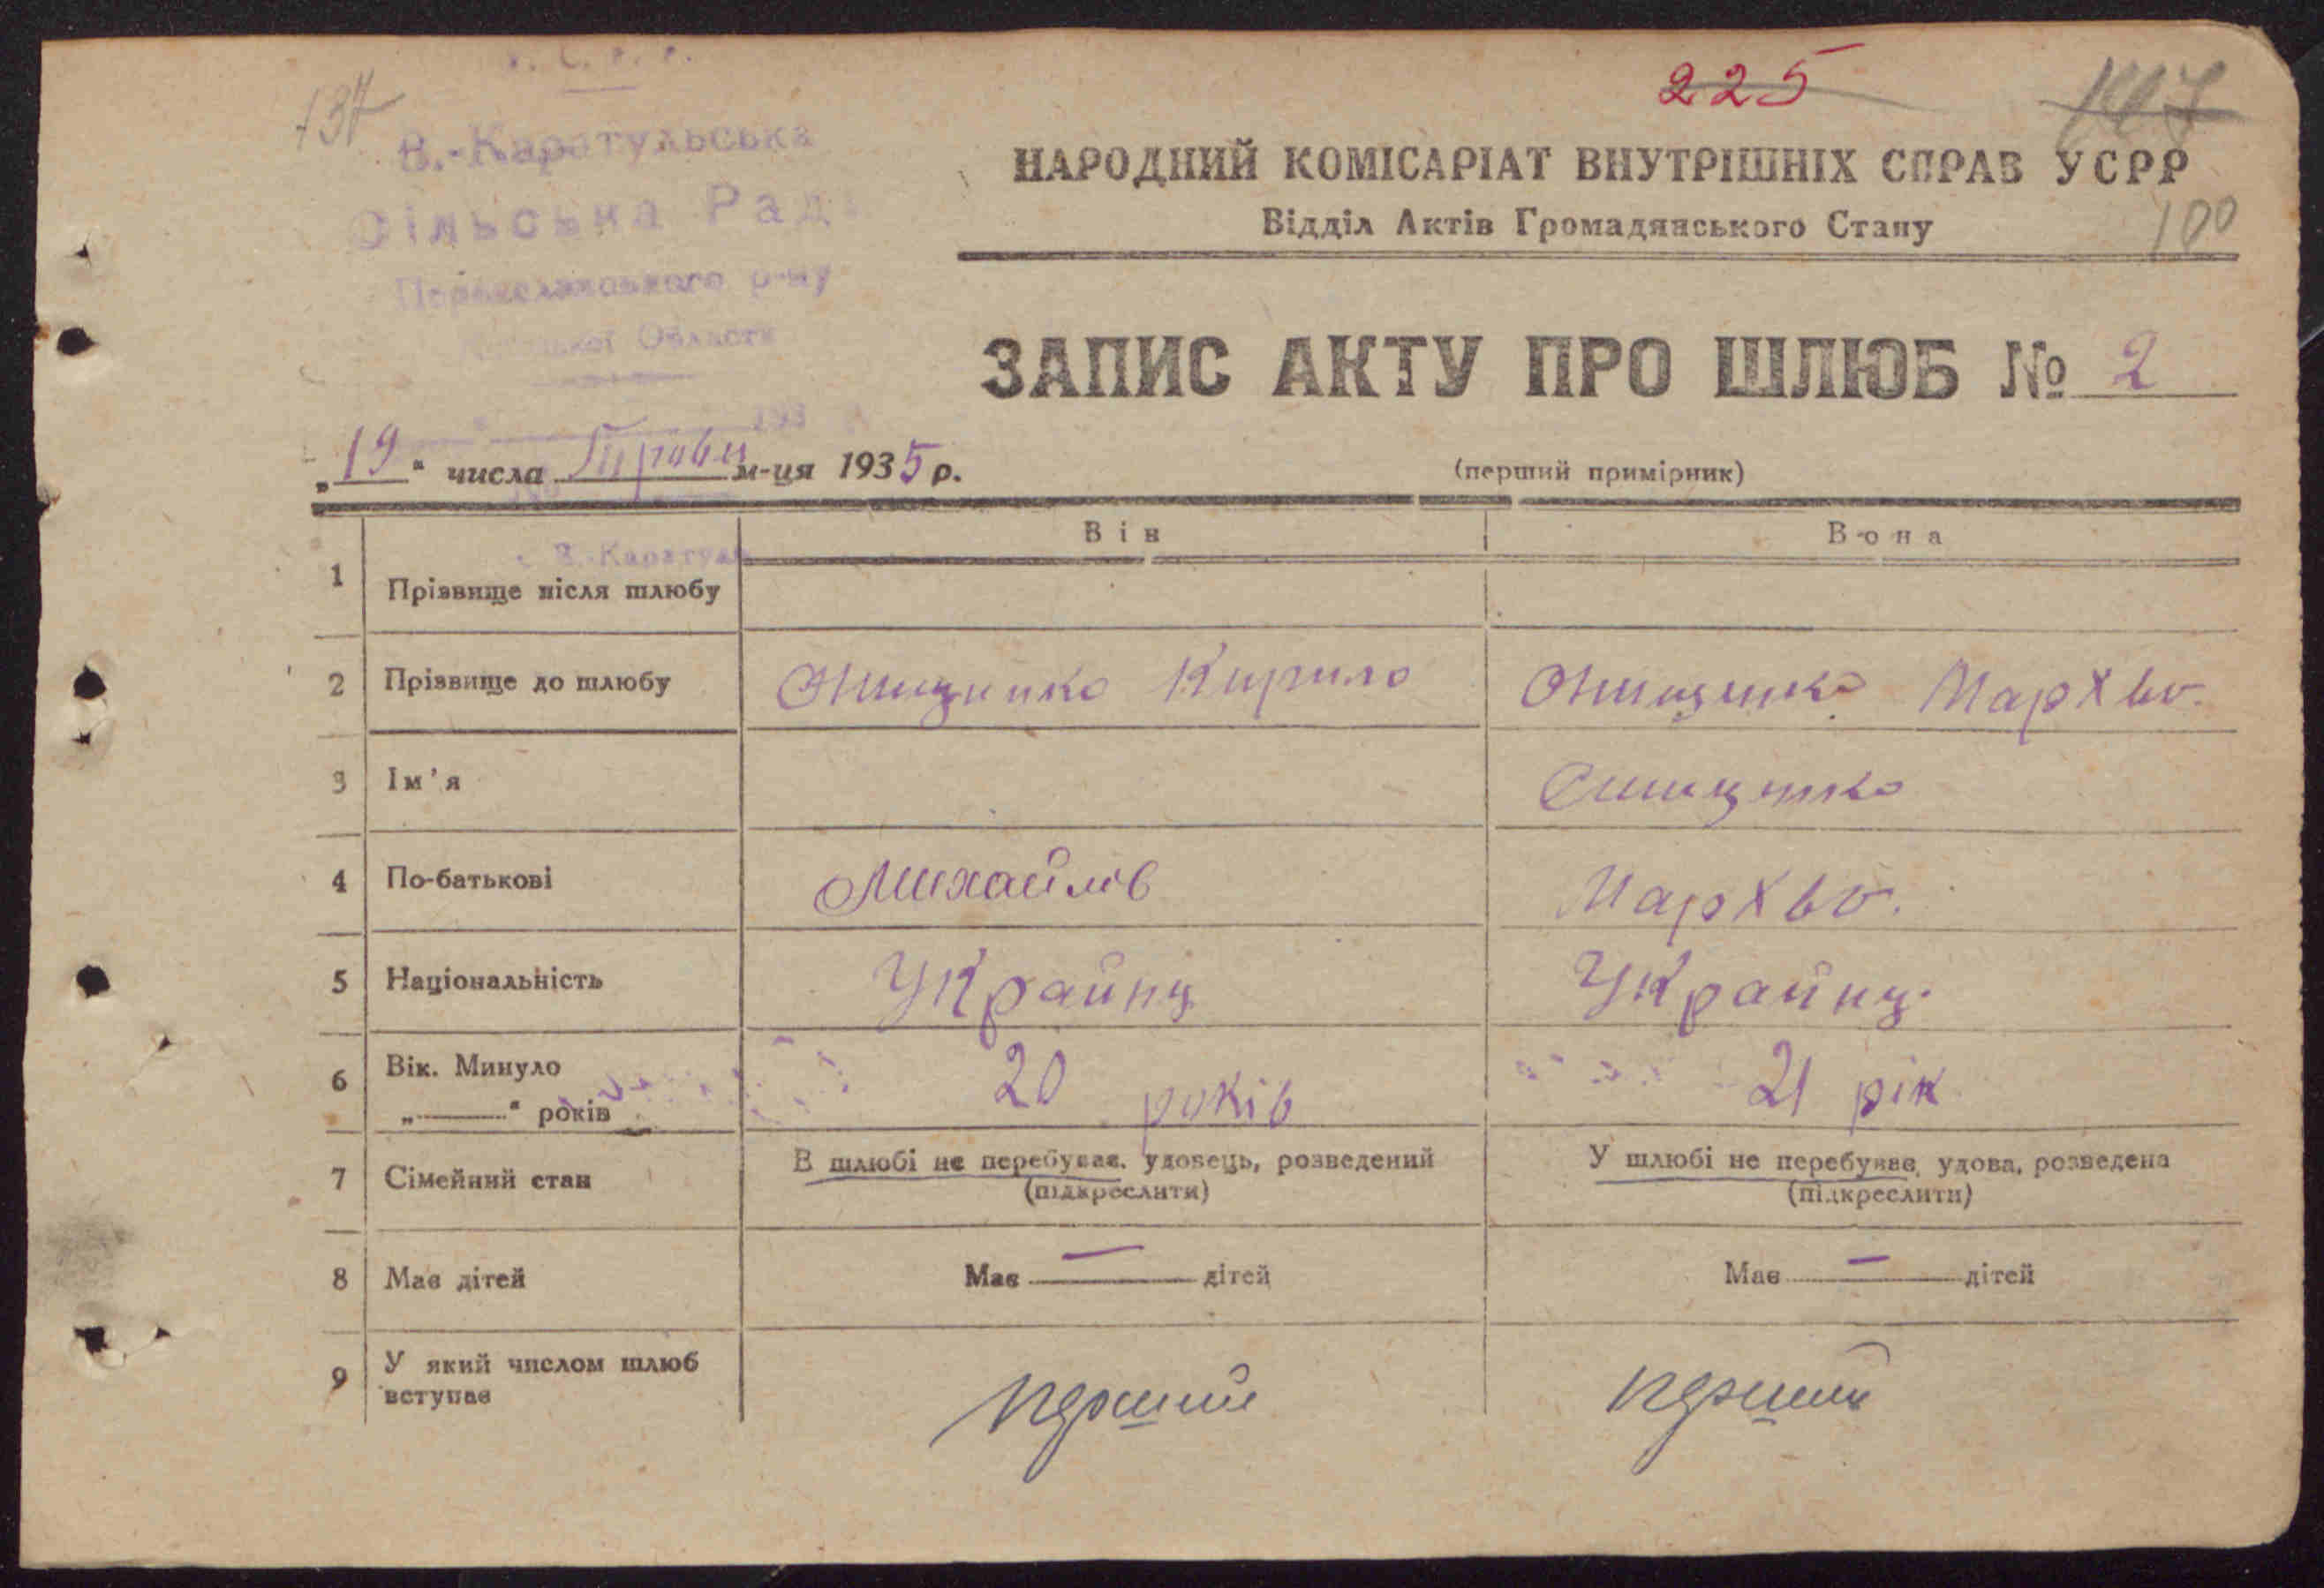 У. С. Р. Р.
225
134
В.-Каратульська
НАРОДНИЙ КОМІСАРІАТ ВНУТРІШНІХ СПРАВ УСРР
Сільська Рада
Відділ Актів Громадянського Стану
100
Переяславського р-ну
Області
ЗАПИС АКТУ ПРО ШЛЮБ № 2
193
„19“ числа м-ця 1935 р.
(перший примірник)
Він
Вона
с. В.-Каратуль
1 Прізвище після шлюбу
2 Прізвище до шлюбу Онищенко Кирило Онищенко Мархво.
3 Ім'я Онищенко
4 По-батькові Михайлов Мархво.
5 Національність Украйнц Украйнц.
6 Вік. Минуло „—“ років 20 років 21 рік
7 Сімейний стан В шлюбі не перебуває, удовець, розведений У шлюбі не перебуває, удова, розведена
(підкреслити) (підкреслити)
8 Має дітей Має — дітей Має — дітей
9 У який числом шлюб вступає перший перший